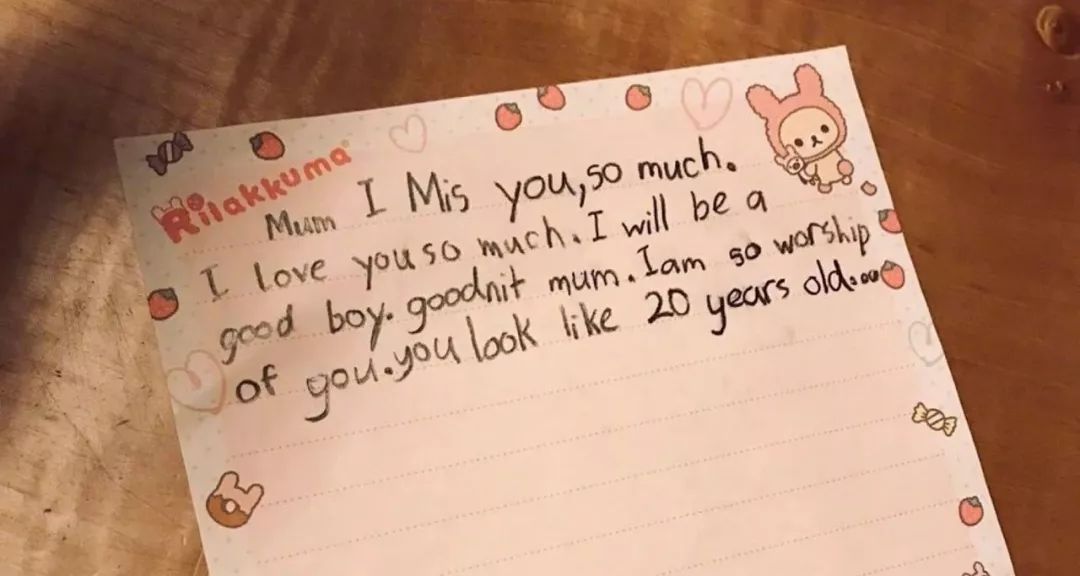 Rilakkuma
Mum I Mis you,so much.
I love you so much. I will be a
good boy. goodnit mum. I am so worship
of you. you look like 20 years old...